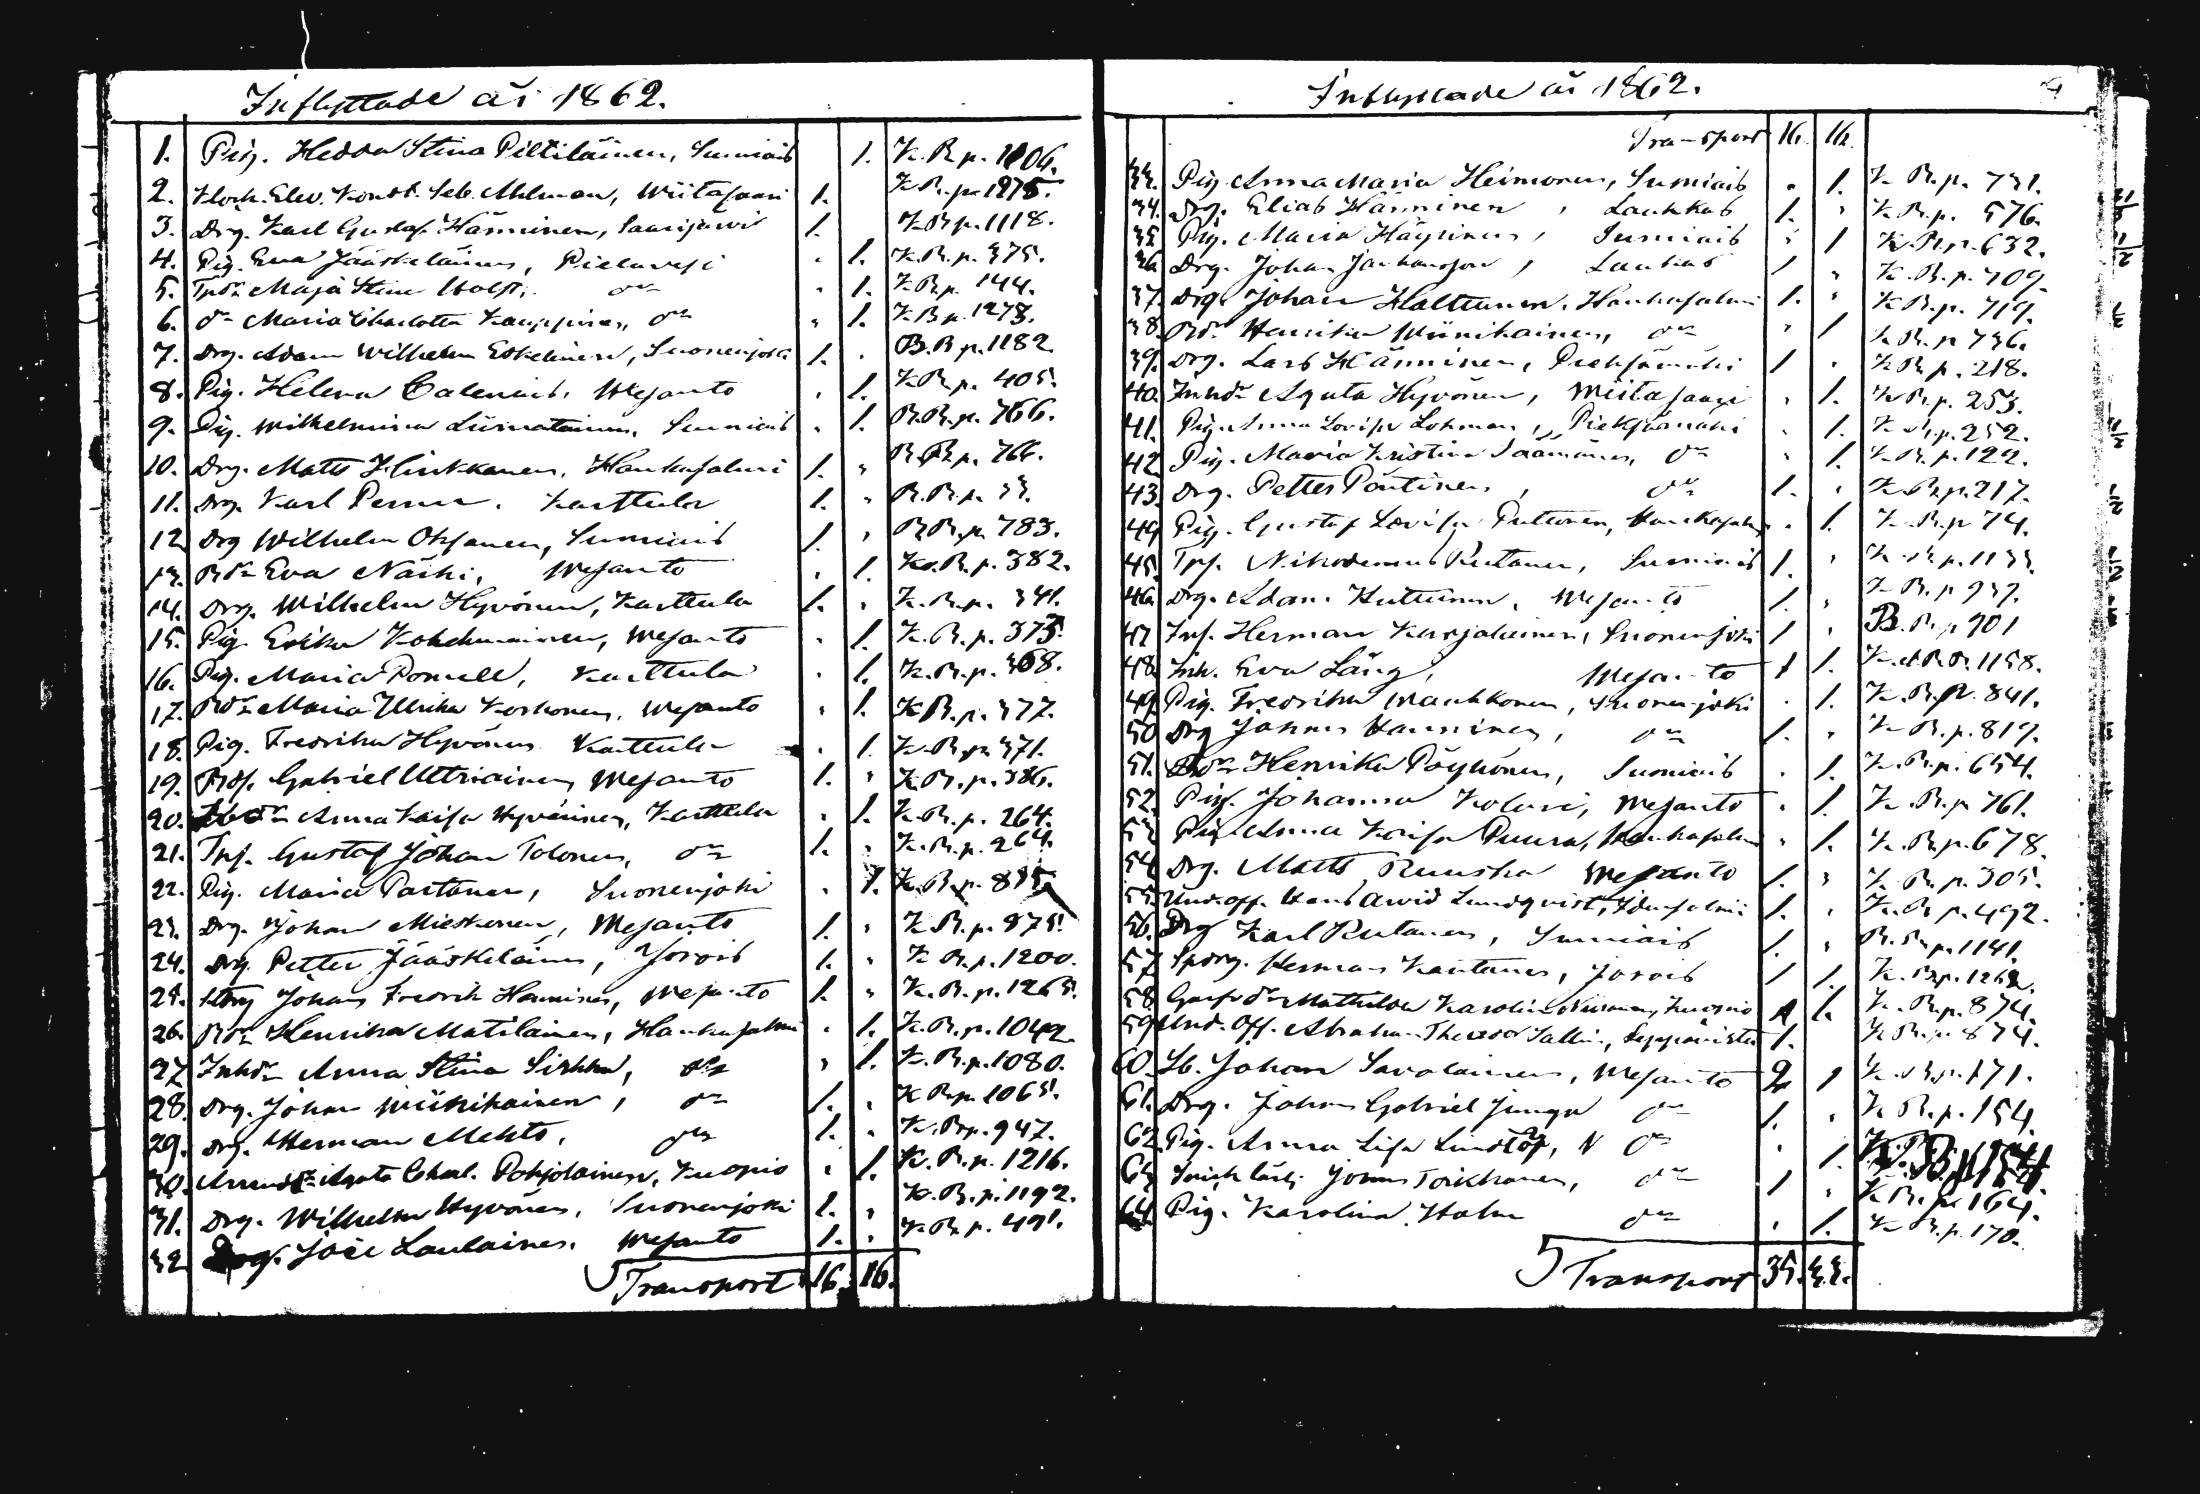 Inflyttade år 1862.
1. Pig. Hedda Stina Piltiläinen, Sumiais 1. K.B.p. 1106.
2. Klock. Elev. Konst. Seb. Ahlman, Wiitasaari 1. K.B.p. 1275.
3. Drg. Karl Gustaf Hänninen, Saarijärvi 1. K.B.p. 1118.
4. Pig. Eva Jääskeläinen, Pielavesi 1. K.B.p. 375.
5. Maja Stina do 1. K.B.p. 144.
6. do Maria Charlotta Kauppinen, do 1. K.B.p. 1273.
7. Drg. Adam Wilhelm Eskelinen, Suonenjoki 1. B.B.p. 1182
8. Pig. Helena Calenius, Wesanto 1. K.B.p. 405.
9. Pig. Wilhelmina Liimatainen, Sumiais 1. R.B.p. 766.
10. Drg. Matts Hinkkanen, Hankasalmi 1. R.B.p. 766.
11. Drg. Karl Karttula 1. R.B.p. 33.
12. Drg Wilhelm Oksanen, Sumiais 1. R.B.p. 783.
13. Eva Näski, Wesanto 1. K.B.p. 382.
14. Drg. Wilhelm Hyvönen, Karttula 1. K.B.p. 341.
15. Pig. Erika Kohchmainen, Wesanto 1. K.B.p. 375.
16. Pig. Maria Karttula 1. K.B.p. 368.
17. Maria Ulrika Korhonen, Wesanto 1. K.B.p. 377.
18. Pig. Fredrika Hyvönen Karttula 1. K.B.p. 371.
19. Gabriel Utriainen, Wesanto 1. K.B.p. 386.
20. Anna Kaisa Hyvärinen, Karttula 1. K.B.p. 264.
21. Gustaf Johan Tolonen, do 1. K.B.p. 264.
22. Pig. Maria Partanen, Suonenjoki 1. K.B.p. 875
23. Drg. Johan Mieskonen, Wesanto 1. K.B.p. 875.
24. Drg. Petter Jääskeläinen, Jorois 1. K.B.p. 1200.
25. Johan Fredrik Hänninen, Wesanto 1. K.B.p. 1265.
26. Henrika Matilainen, Hankasalmi 1. K.B.p. 1042.
27. Inhdr Anna Stina Sirkka, do 1. K.B.p. 1080.
28. Drg. Johan Wiinikainen, do 1. K.B.p. 1065.
29. Drg. Herman Mehto, do 1. K.B.p. 947.
30. Agata Charl. Pohjolainen, Kuopio 1. K.B.p. 1216.
31. Drg. Wilhelm Hyvönen, Suonenjoki 1. K.B.p. 1192.
32. Drg. Joël Laulainen, Wesanto 1. K.B.p. 491.
Transport 16. 16.
Inflyttade år 1862.
Transport 16. 16.
33. Pig. Anna Maria Heimonen, Sumiais 1. K.B.p. 731.
34. Drg. Elias Hänninen, Laukkas 1. K.B.p. 576.
35. Pig. Maria Häyrinen, Sumiais 1 K.B.p. 632.
36. Drg. Johan Laukas 1 K.B.p. 709.
37. Drg. Johan Halttunen, Hankasalmi 1. K.B.p. 719.
38. Henrika Wiinikainen, do 1 K.B.p. 736.
39. Drg. Lars Hänninen, Pieksämäki 1 K.B.p. 218.
40. Inhdr Agata Hyvönen, Wiitasaari 1. K.B.p. 253.
41. Pig. Anna Lovisa Lohman, Pieksämäki 1. K.B.p. 252.
42. Pig. Maria Kristina Säämänen, do 1. K.B.p. 122.
43. Drg. Petter Pöntinen, do 1. K.B.p. 217.
44. Pig. Gustaf Lovisa Puttonen, Hankasalmi 1. K.B.p. 74.
45. Nikodemus Rutanen, Sumiais 1. K.B.p. 1133.
46. Drg. Adam Huttunen, Wesanto 1. K.B.p. 937.
47. Inh. Herman Karjalainen, Suonenjoki 1 B.B.p. 901
48. Inh. Eva Läng, Wesanto 1 1. 1158.
49. Pig. Fredrika Markkonen, Suonenjoki 1. K.B.p. 841.
50. Drg Johan Hänninen, do 1. K.B.p. 819.
51. Henrika Pöyhönen, Sumiais 1. K.B.p. 654.
52. Pig. Johanna Kolari, Wesanto 1. K.B.p. 761.
53. Pig. Anna Kaisa Puura, Hankasalmi 1. K.B.p. 678.
54. Drg. Matts Ruuska Wesanto 1. K.B.p. 305.
55. Und.off. Hans Arvid Lundqvist, Idensalmi 1. K.B.p. 492.
56. Drg Karl Rutanen, Sumiais 1. R.B.p. 1141.
57. Herman Kautanen, Jorois 1 K.B.p. 1262.
58. Mathilda Karolina Kuopio 1. K.B.p. 874.
59. Und.off. Abraham Theodor Sallin, 1. K.B.p. 874.
60. Johan Savolainen, Wesanto 2 1 K.B.p. 171.
61. Drg. Johan Gabriel Junga do 1. K.B.p. 154.
62. Pig. Anna Lisa Lindlöf, do 1. 154
63. Johan Toikkanen, do 1 K.B.p. 164.
64. Pig. Karolina Holm do 1. K.B.p. 170.
Transport 35. 33.